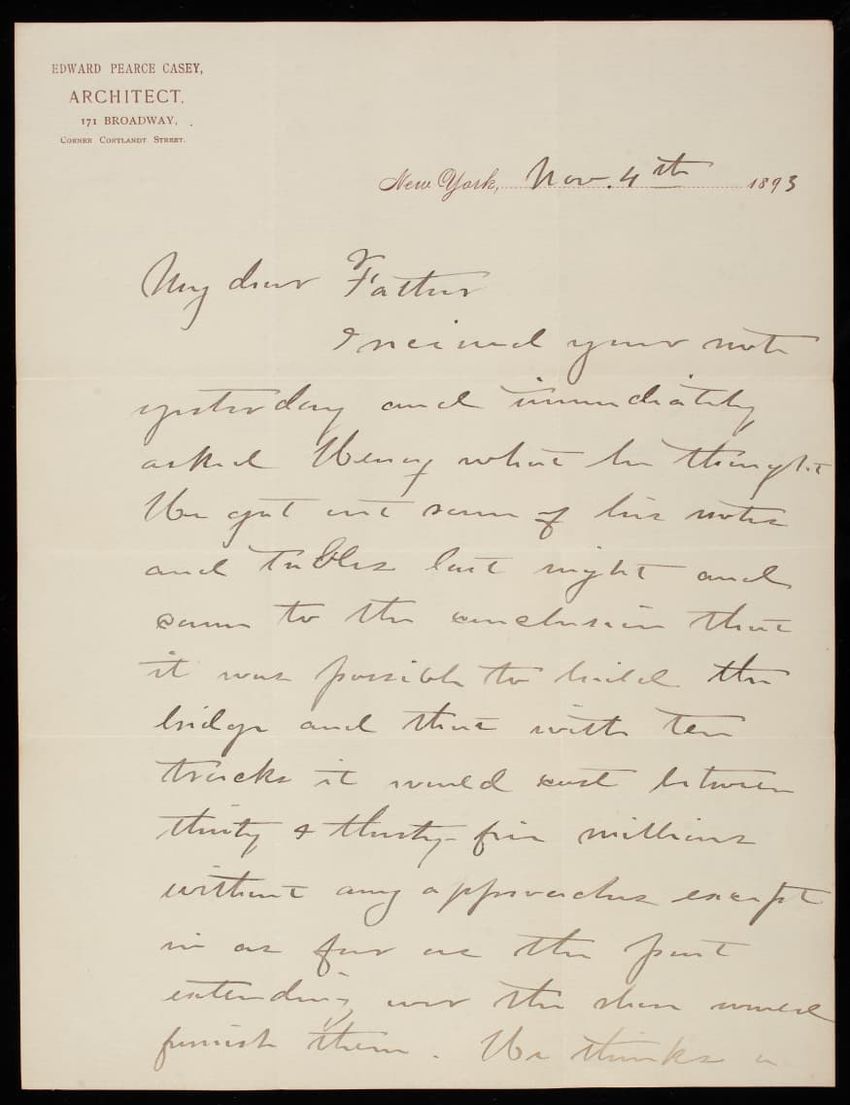 EDWARD PEARCE CASEY,
ARCHITECT.
171 BROADWAY,
CORNER CORTLANDT STREET.
New York, Nov. 4th 1893
My dear Father
I received your note
yesterday and immediately
asked Henry what he thought
He got out some of his notes
and tables last night and
came to the conclusion that
it was possible to build the
bridge and that with ten
tracks it would cost between
thirty & thirty-five millions
without any approaches except
in as far as the part
extending over the shore would
furnish them. He thinks a